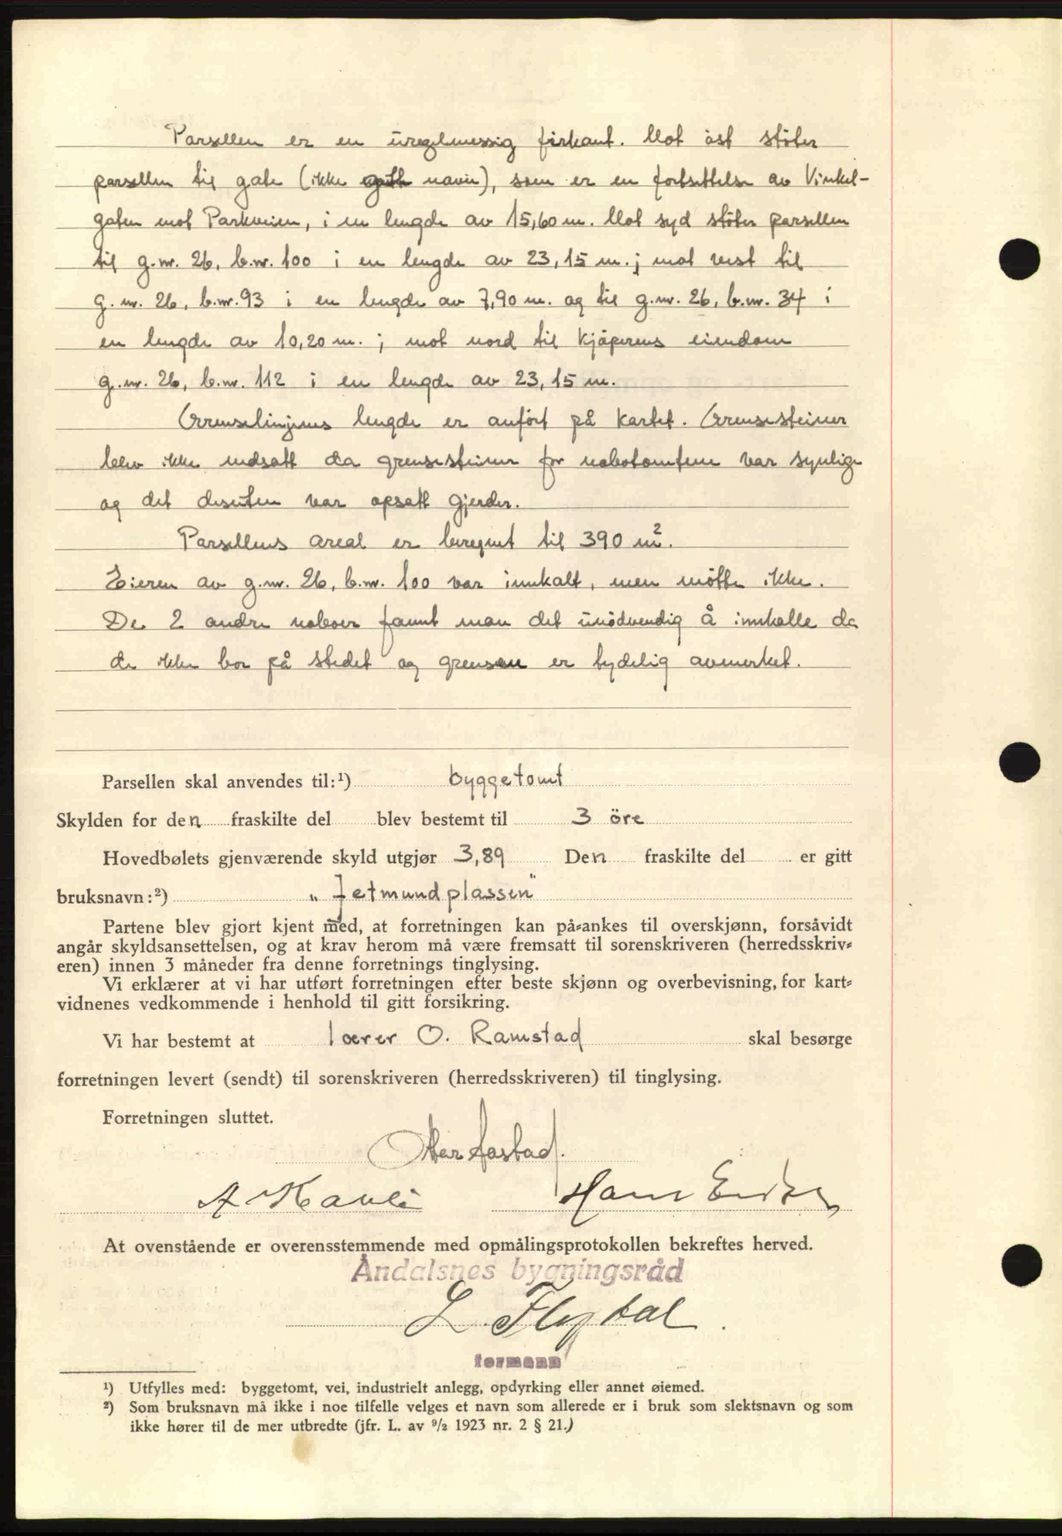 Parsellen er en uregelmessig firkant. Mot øst støter
parsellen til gate (ikke navn), som er en fortsettelse av Vinkel-
gaten mot Parkveien, i en lengde av 15,60 m. Mot syd støter parsellen
til g.nr. 26, b.nr. 100 i en lengde av 23,15 m.; mot vest til
g.nr. 26, b.nr. 93 i en lengde av 7,90 m. og til g.nr. 26, b.nr. 34 i
en lengde av 10,20 m.; mot nord til kjøperens eiendom
g.nr. 26, b.nr. 112 i en lengde av 23,15 m.
Grenselinjens lengde er anført på kartet. Grensesteiner
blev ikke nedsatt da grensesteiner for nabotomtene var synlige
og det desuten var opsatt gjerder.
Parsellens areal er beregnet til 390 m².
Eieren av g.nr. 26, b.nr. 100 var innkalt, men møtte ikke.
De 2 andre naboer fannt man det unødvendig å innkalle da
de ikke bor på stedet og grensen er tydelig avmerket.
Parsellen skal anvendes til:¹) byggetomt
Skylden for den fraskilte del blev bestemt til 3 öre
Hovedbølets gjenværende skyld utgjør 3,89 Den fraskilte del er gitt
bruksnavn:²) "Jetmundplassen"
Partene blev gjort kjent med, at forretningen kan på-ankes til overskjønn, forsåvidt
angår skyldsansettelsen, og at krav herom må være fremsatt til sorenskriveren (herredsskriv-
eren) innen 3 måneder fra denne forretnings tinglysing.
Vi erklærer at vi har utført forretningen efter beste skjønn og overbevisning, for kart-
vidnenes vedkommende i henhold til gitt forsikring.
Vi har bestemt at lærer O. Ramstad skal besørge
forretningen levert (sendt) til sorenskriveren (herredsskriveren) til tinglysing.
Forretningen sluttet.
A Kavli Hans
At ovenstående er overensstemmende med opmålingsprotokollen bekreftes herved.
Åndalsnes bygningsråd
L. Flydal.
formann
¹) Utfylles med: byggetomt, vei, industrielt anlegg, opdyrking eller annet øiemed.
²) Som bruksnavn må ikke i noe tilfelle velges et navn som allerede er i bruk som slektsnavn og som
ikke hører til de mer utbredte (jfr. L. av ⁹/₂ 1923 nr. 2 § 21.)